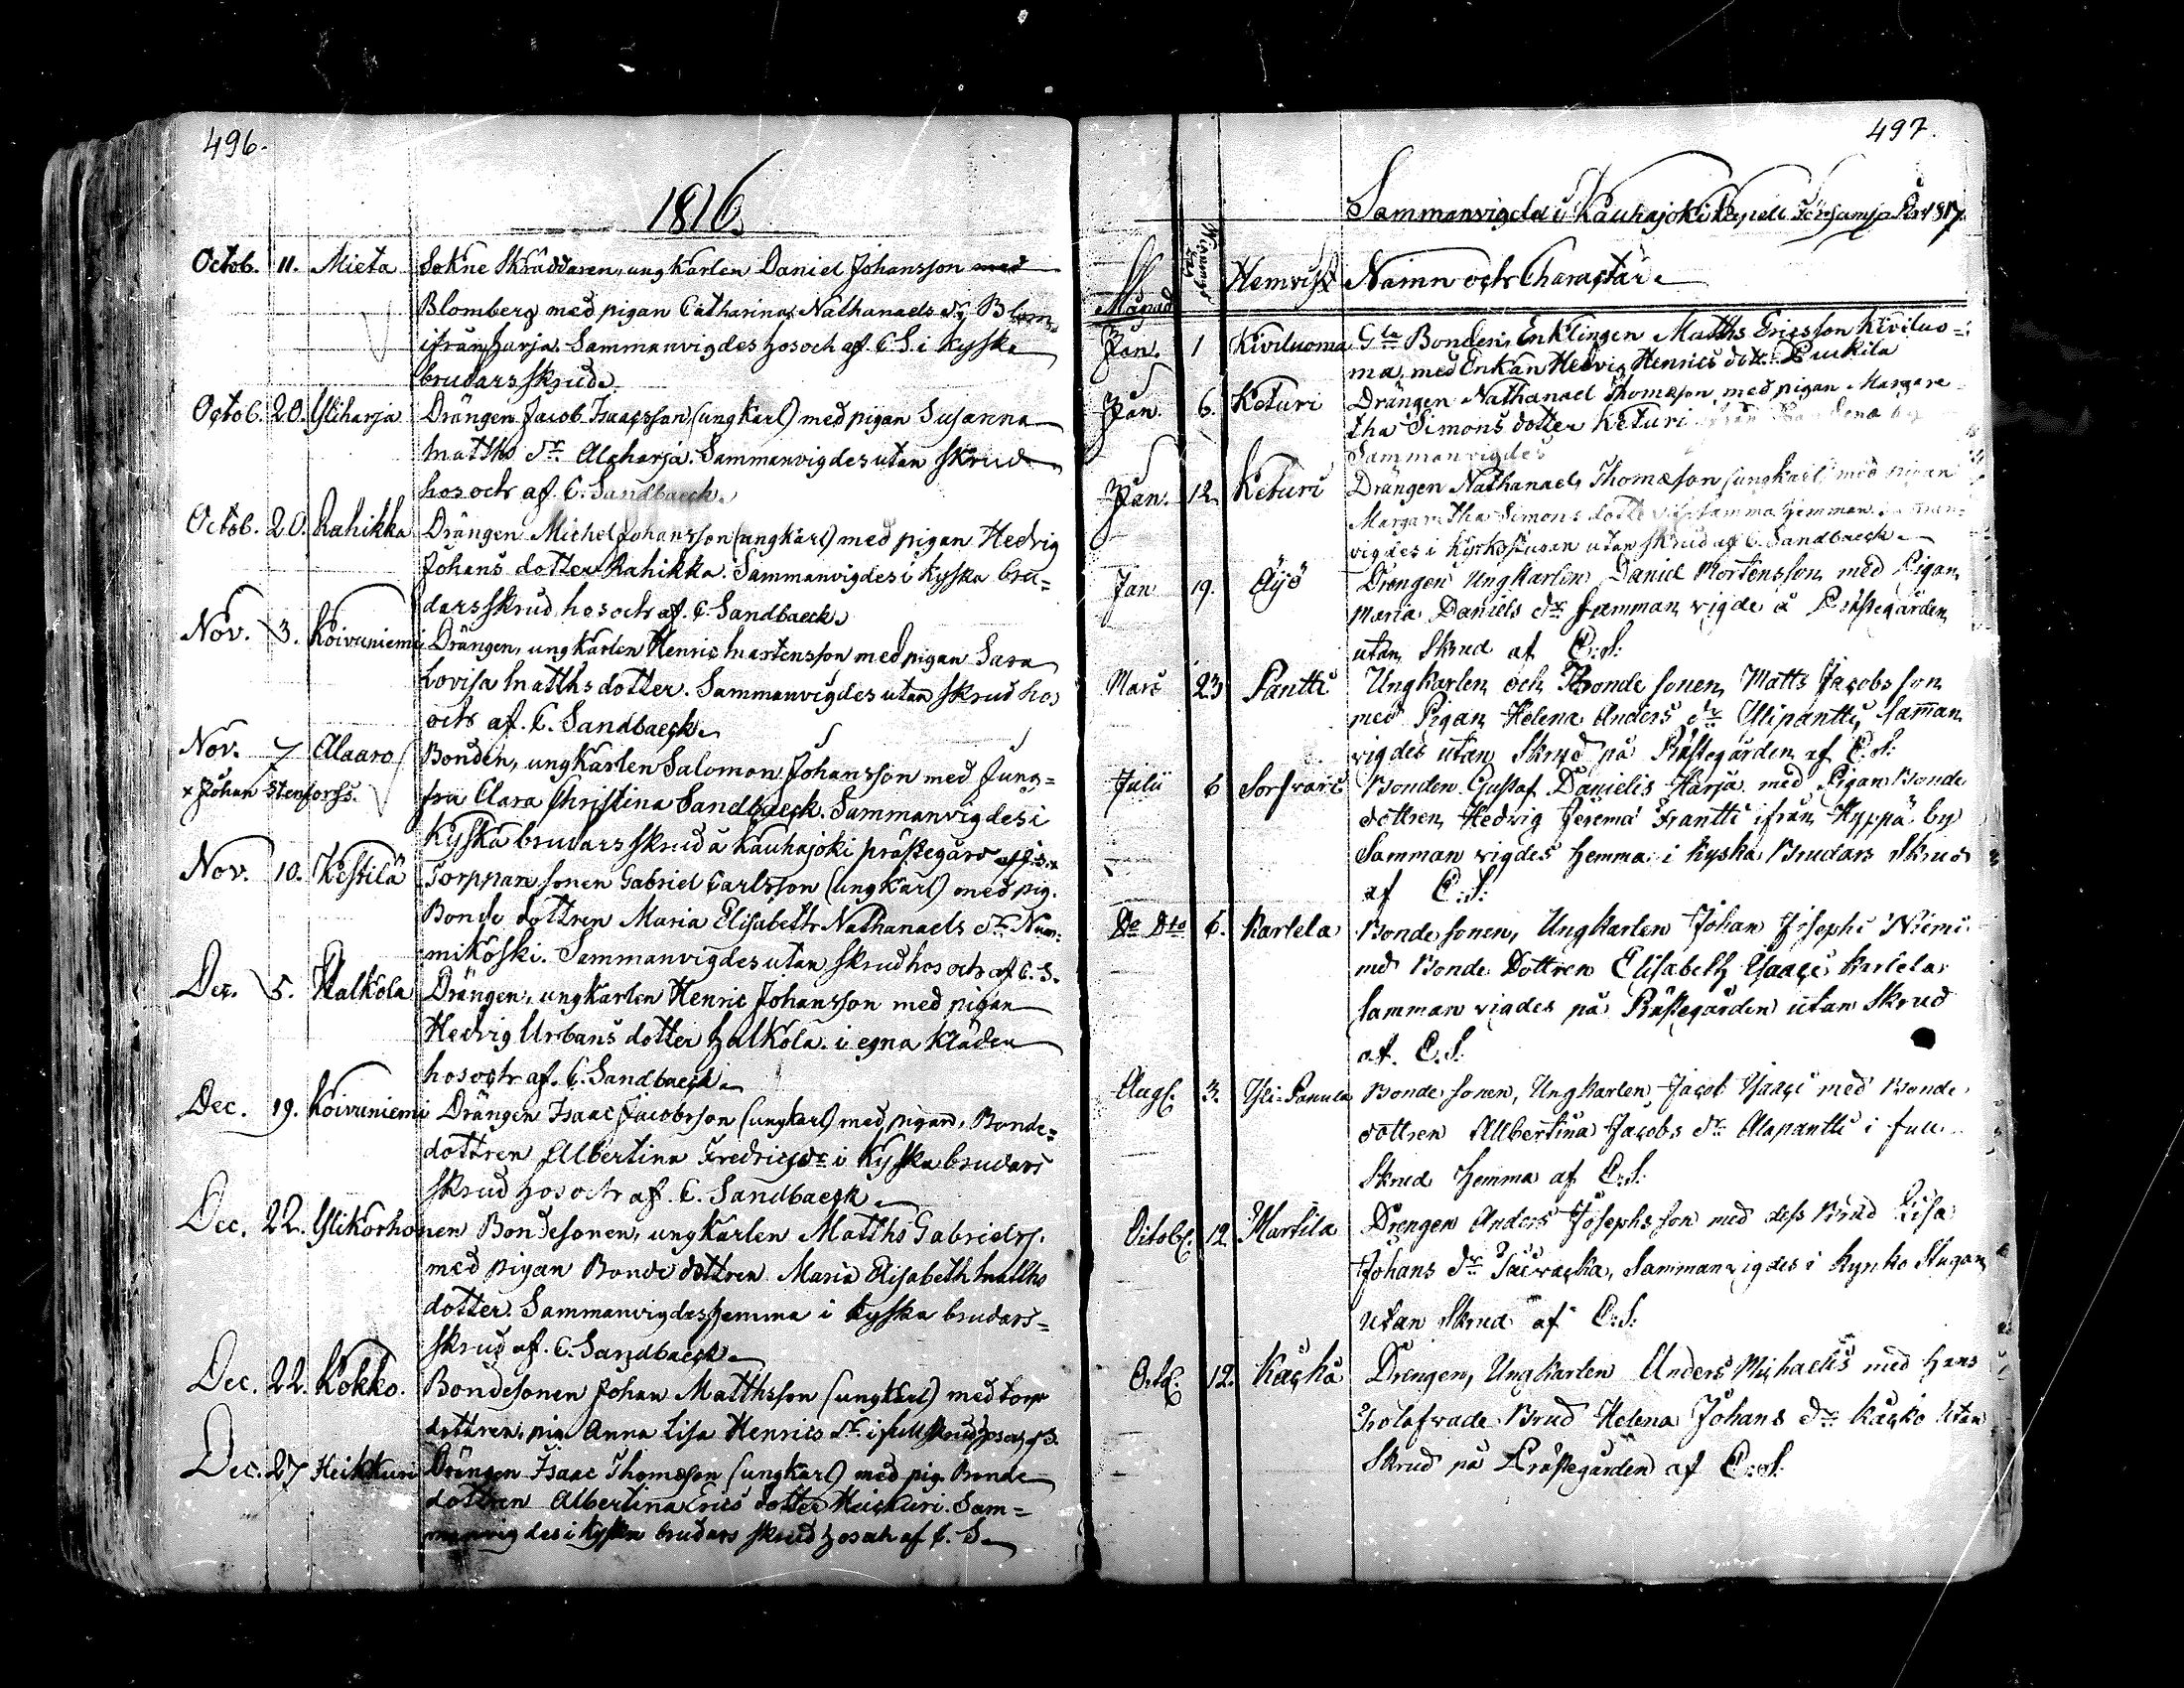 496.
1816
Octob. 11. Mieta Sokne Skräddaren, ungkarlen Daniel Johansson med
Blomberg med pigan Catharina Nathanaels dr Blom
ifrån Harja. Sammanvigdes hos och af C. S. i kyska
brudars skrud.
Octob. 20. Yliharja Drängen Jacob Isaacsson (ungkarl) med pigan Susanna
Matths dr Alaharja. Sammanvigdes utan skrud
hos och af C. Sandbaeck.
Octob. 20. Rahikka Drängen Michel Johansson (ungkarl) med pigan Hedvig
Johans dotter Rahikka. Sammanvigdes i kyska bru=
dars skrud hos och af C. Sandbaeck.
Nov. 3. Koivuniemi Drängen, ungkarlen Henric Martensson med pigan Sara
Lovisa Matths dotter. Sammanvigdes utan skrud hos
och af C. Sandbaeck.
Nov. 7 Alaaro Bonden, ungkarlen Salomon Johansson med Jung=
x Johan Stenfors. fru Clara Christina Sandbaeck. Sammanvigdes i
kyska brudars skrud å Kauhajoki prästegård af J. S. x
Nov. 10. Kestilä Torppare sonen Gabriel Carlsson (ungkarl) med pig.
Bonde dottren Maria Elisabeth Nathanaels dr Num=
mikoski. Sammanvigdes utan skrud hos och af C. S.
Dec. 5. Halkola Drängen, ungkarlen Henric Johansson med pigan
Hedvig Urbans dotter Halkola. i egna kläder
hos och af C. Sandbaeck.
Dec. 19. Koivuniemi Drängen Isaac Jacobsson (ungkarl) med pigan, Bonde=
dottren Albertina Fredrics dr i kyska brudars
skrud hos och af C. Sandbaeck.
Dec. 22. Ylikorhonen Bondesonen, ungkarlen Matths Gabrielss.
med pigan Bonde dottren Maria Elisabeth Matths
dotter. Sammanvigdes hemma i kyska brudars=
skrud af C. Sandbaeck.
Dec. 22. Kokko. Bondesonen Johan Matthsson (ungkarl) med torp
dottren, pig. Anna Lisa Henrics dr i full skrud
Dec. 27 Heikkuri Drängen Isaac Thomasson (ungkarl) med pig. Bonde
dottren Albertina Erics dotter Heickuri. Sam=
manvigdes i kyska brudars skrud hos och af C. S.
497.
Sammanvigde i Kauhajoki Capell Församl. År 1817.
Månad Hemvist Namn och Charactär
Jan. 1 Kiviluoma Gla Bonden, Enklingen Matths Ericsson Kiviluo=
ma, med Enkan Hedvig Henrics dott. Luukila
Jan. 6. Keturi Drängen Nathanael Thomasson, med pigan Margare
tha Simons dotter Keturi
Sammanvigdes
Jan. 12. Keturi Drängen Nathanael Thomasson (ungkarl) med pigan
Margaretha Simons dotter samma hemman. Samman=
vigdes i kyrkstugan utan skrud af C. Sandbaeck.
Jan 19. Äijö Drengen Ungkarlen Daniel Mortensson med Pigan
Maria Daniels dr Samman vigde å Prästegården
utan Skrud af C: S:
Mars 23 Pantti Ungkarlen och Bonde sonen Matts Jacobs son
med Pigan Helena Anders dr Ylipantti, Samman
vigdes utan Skrud på Prästegården af C: S:
Julii 6 Sorfvari Bonden Gustaf Danielis Harja med Pigan Bonde
dottren Hedvig Jeremiæ Frantti ifrån Hyppä by
Samman vigdes hemma i kyska Brudars Skrud
af C: S:
Do Dto 6. Karlela Bonde sonen, Ungkarlen Johan Josephi Niemi
med Bonde Dottren Elisabeth Isaacs Karlela
samman vigdes på Prästegården utan Skrud
af C. S.
Aug. 3. Yli-Panula Bonde sonen, Ungkarlen Jacob Isaaci med Bonde
dottren Albertina Jacobs dr Alapantti i full
Skrud hemma af C: S:
Octob. 12 Martila Drengen Anders Josephsson med dess Brud Lisa
Johans dr Sammanvigdes i Kyrko Stugan
utan Skrud af C: S:
Oct. 12. Kacko Drengen, Ungkarlen Anders Michaelis med hans
Trolofvade Brud Helena Johans dr Kacko utan
Skrud på Prästegården af C: S: